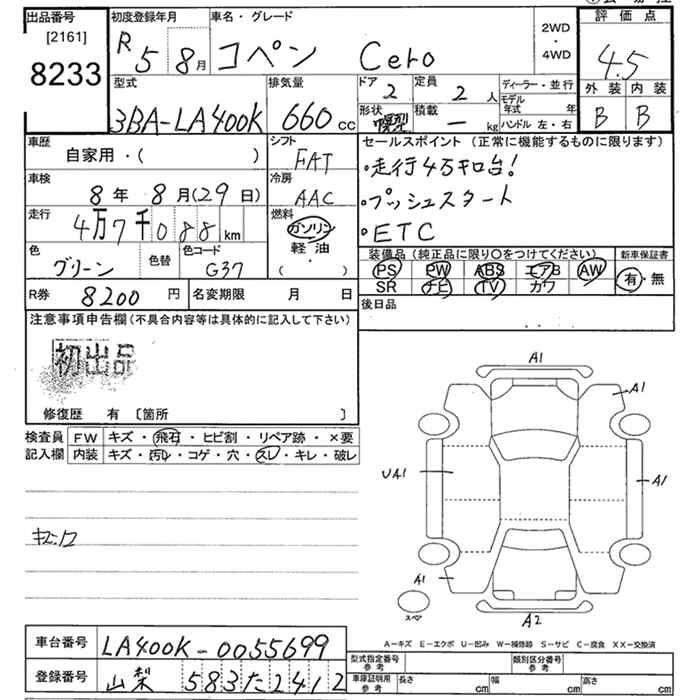 出品番号
[2161]
8233
初度登録年月
R 5 8月
車名・グレード
コペン Cero
2WD
・
4WD
評価点
4.5
外装 内装
B B
型式
3BA-LA400K
排気量
660 cc
ドア
2
定員
2 人
形状
積載
ー kg
ディーラー・並行
モデル年式 年
ハンドル 左・右
車歴
自家用・( )
シフト
FAT
セールスポイント (正常に機能するものに限ります)
・走行4万キロ台!
・プッシュスタート
・ETC
車検
8年 8月(29日)
冷房
AAC
走行
4万7千088km
燃料
ガソリン
軽油
( )
色
グリーン
色替
色コード
G37
装備品 (純正品に限り○をつけてください)
PS PW ABS エアB AW
SR ナビ TV カワ
新車保証書
有・無
R券 8200円
名変期限 月 日
後日品
注意事項申告欄(不具合内容等は具体的に記入して下さい)
初出品
修復歴 有 〔箇所 〕
検査員記入欄
FW キズ・飛石・ヒビ割・リペア跡・×要
内装 キズ・汚れ・コゲ・穴・スレ・キレ・破レ
A1
A1
UA1
A1
A1
A2
スペア
A-キズ E-エクボ U-凹み W-補修跡 S-サビ C-腐食 XX-交換済
車台番号 LA400K-0055699
登録番号 山梨 583た2412
型式指定番号
参考
類別区分番号
参考
車庫証明用
参考
長さ cm
幅 cm
高さ cm